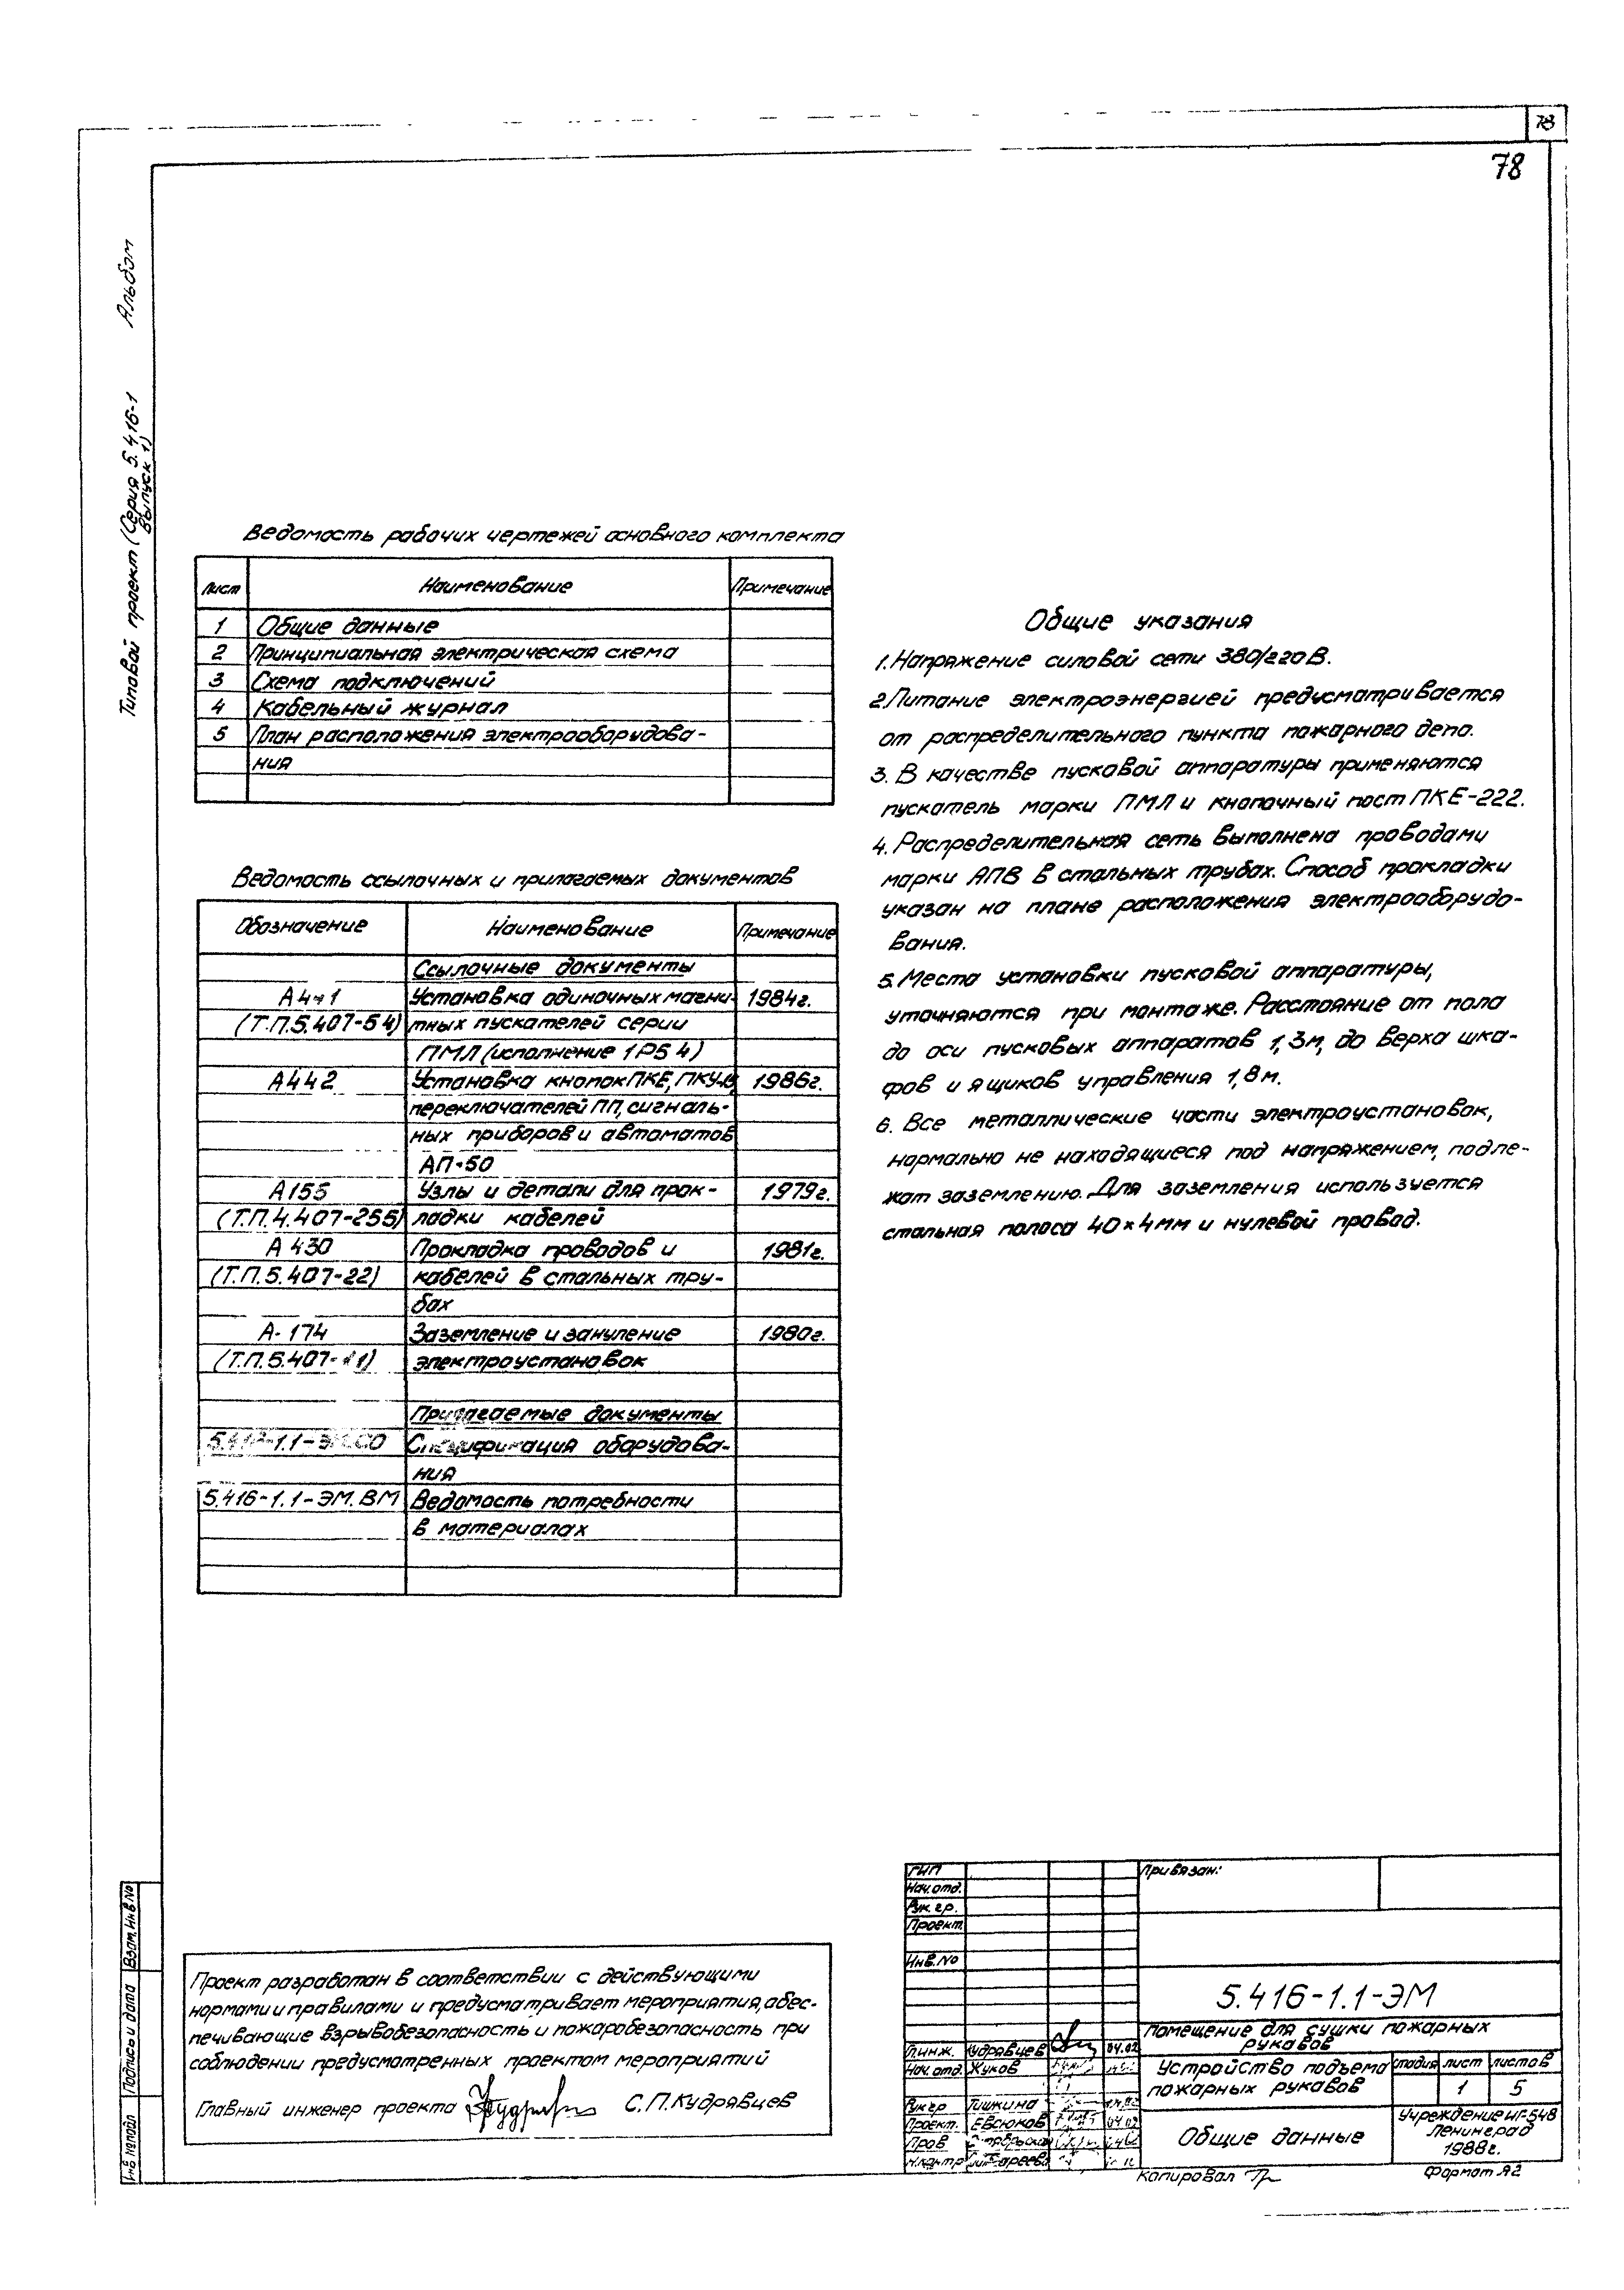 78
78
Альбом
Типовой проект (Серия 5.416-1
Выпуск 1)
Ведомость рабочих чертежей основного комплекта
Лист Наименование Примечание
1 Общие данные
2 Принципиальная электрическая схема
3 Схема подключений
4 Кабельный журнал
5 План расположения электрооборудова-
ния
Ведомость ссылочных и прилагаемых документов
Обозначение Наименование Примечание
Ссылочные документы
Установка одиночных магни- 1984г.
(Т.П.5.407-54) тных пускателей серии
ПМЛ (исполнение 1Р54)
А442 Установка кнопок ПКЕ, 1986г.
переключателей ПП, сигналь-
ных приборов и автоматов
АП-50
А155 Узлы и детали для прок- 1979г.
(Т.П.4.407-255) ладки кабелей
А430 Прокладка проводов и 1981г.
(Т.П.5.407-22) кабелей в стальных тру-
бах
А-174 Заземление и зануление 1980г.
электроустановок
Прилагаемые документы
Спецификация оборудова-
ния
5.416-1.1-ЭМ.ВМ Ведомость потребности
в материалах
Общие указания
1. Напряжение силовой сети 380/220В.
2. Питание электроэнергией предусматривается
от распределительного пункта пожарного депо.
3. В качестве пусковой аппаратуры применяются
пускатель марки ПМЛ и кнопочный пост ПКЕ-222.
4. Распределительная сеть выполнена проводами
марки АПВ в стальных трубах. Способ прокладки
указан на плане расположения электрооборудо-
вания.
5. Места установки пусковой аппаратуры,
уточняются при монтаже. Расстояние от пола
до оси пусковых аппаратов 1,3м, до верха шка-
фов и ящиков управления 1,8м.
6. Все металлические части электроустановок,
нормально не находящиеся под напряжением, подле-
жат заземлению. Для заземления используется
стальная полоса 40×4мм и нулевой провод.
Проект разработан в соответствии с действующими
нормами и правилами и предусматривает мероприятия, обес-
печивающие взрывобезопасность и пожаробезопасность при
соблюдении предусмотренных проектом мероприятий
Главный инженер проекта С.П.Кудрявцев
Инв.№подл Подпись и дата Взам.Инв.№
ГИП
Нач.отд.
Рук.гр.
Проект.
Инв.№
Привязан:
5.416-1.1-ЭМ
Помещение для сушки пожарных
рукавов
Гл.инж. Кудрявцев 04.02
Нач.отд. Жуков
Рук.гр Тишкина
Проект. Евсюков 04.02
Пров
Н.контр
Устройство подъема
пожарных рукавов
стадия лист листов
1 5
Общие данные
Учреждение ИГ-548
Ленинград
1988г.
Копировал
Формат А2